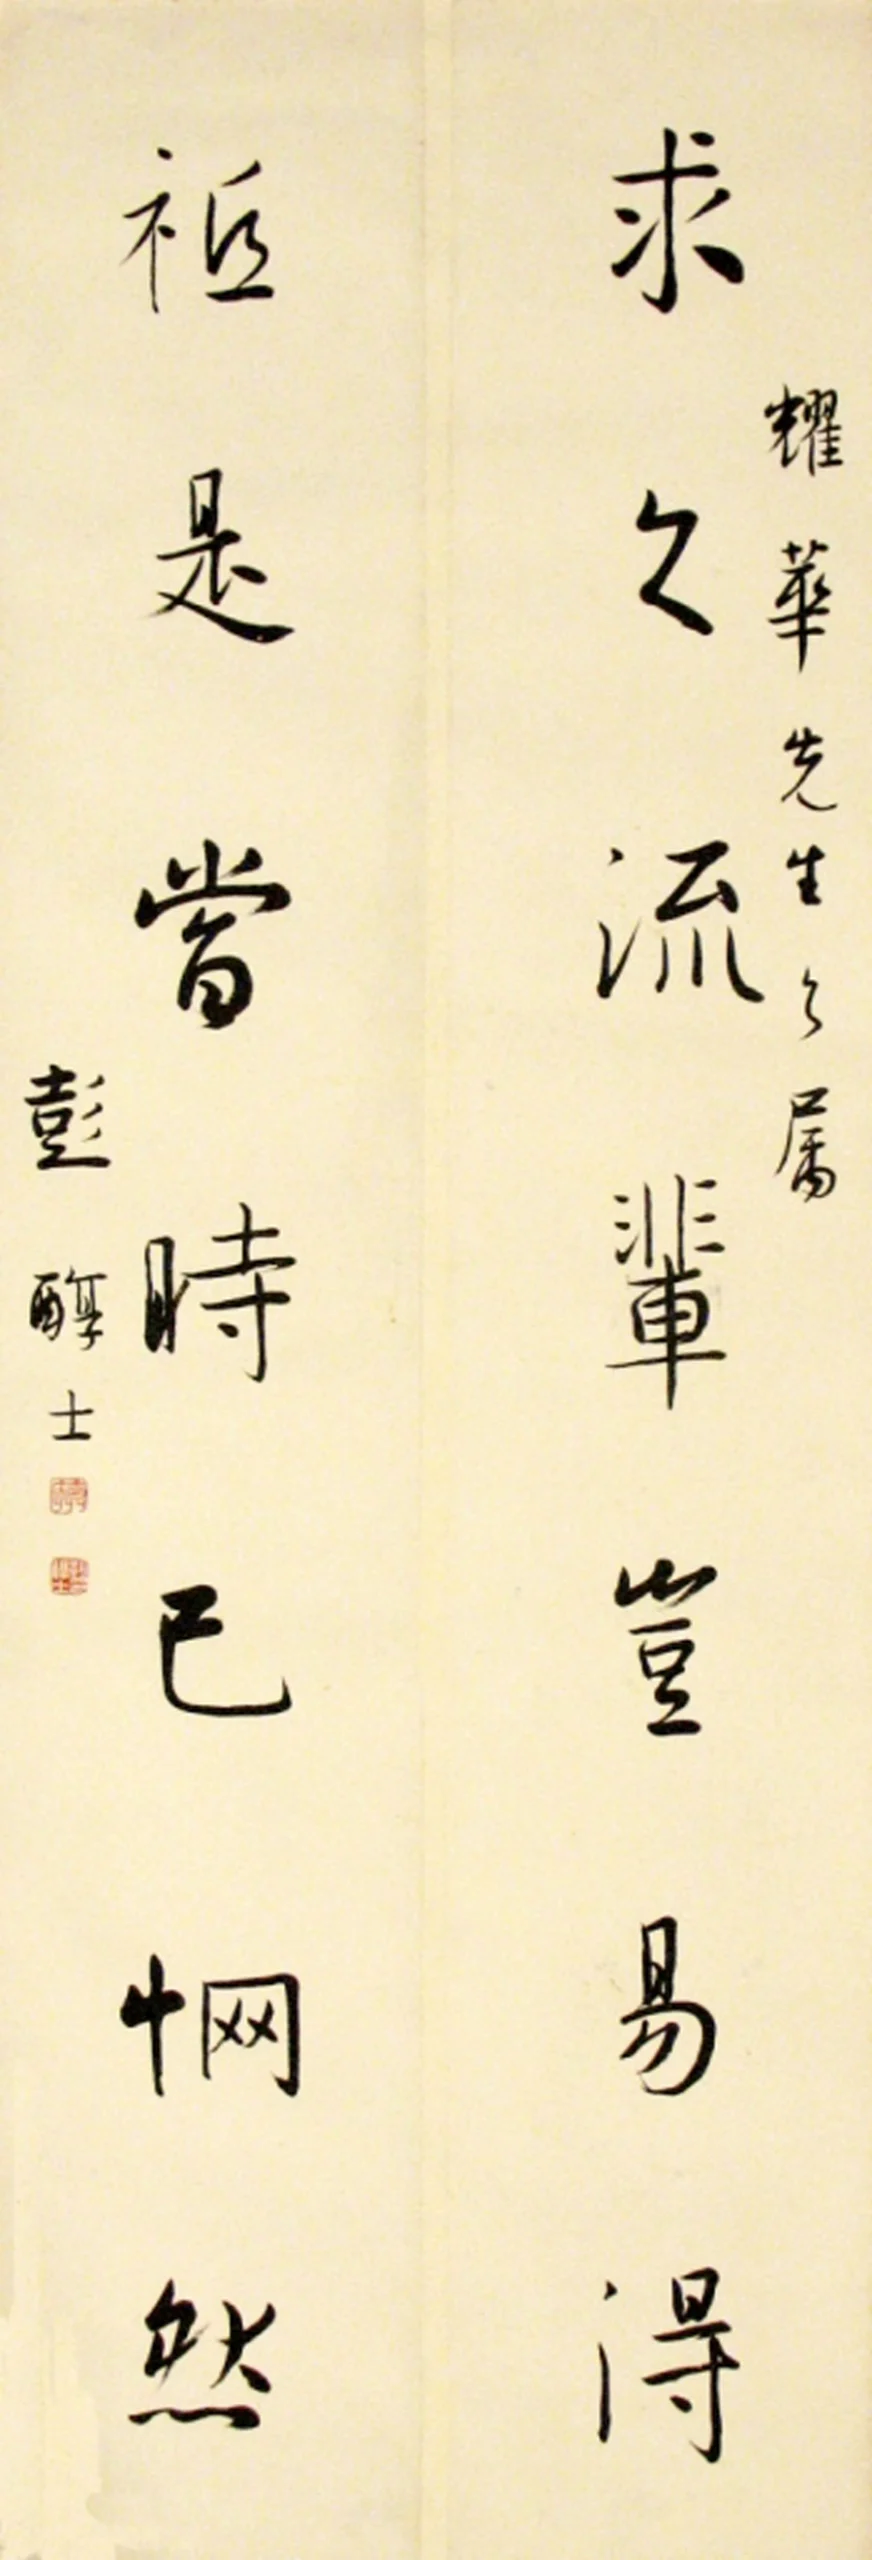 耀華先生之屬
求之流輩豈易得
祗是當時已惘然
彭醇士